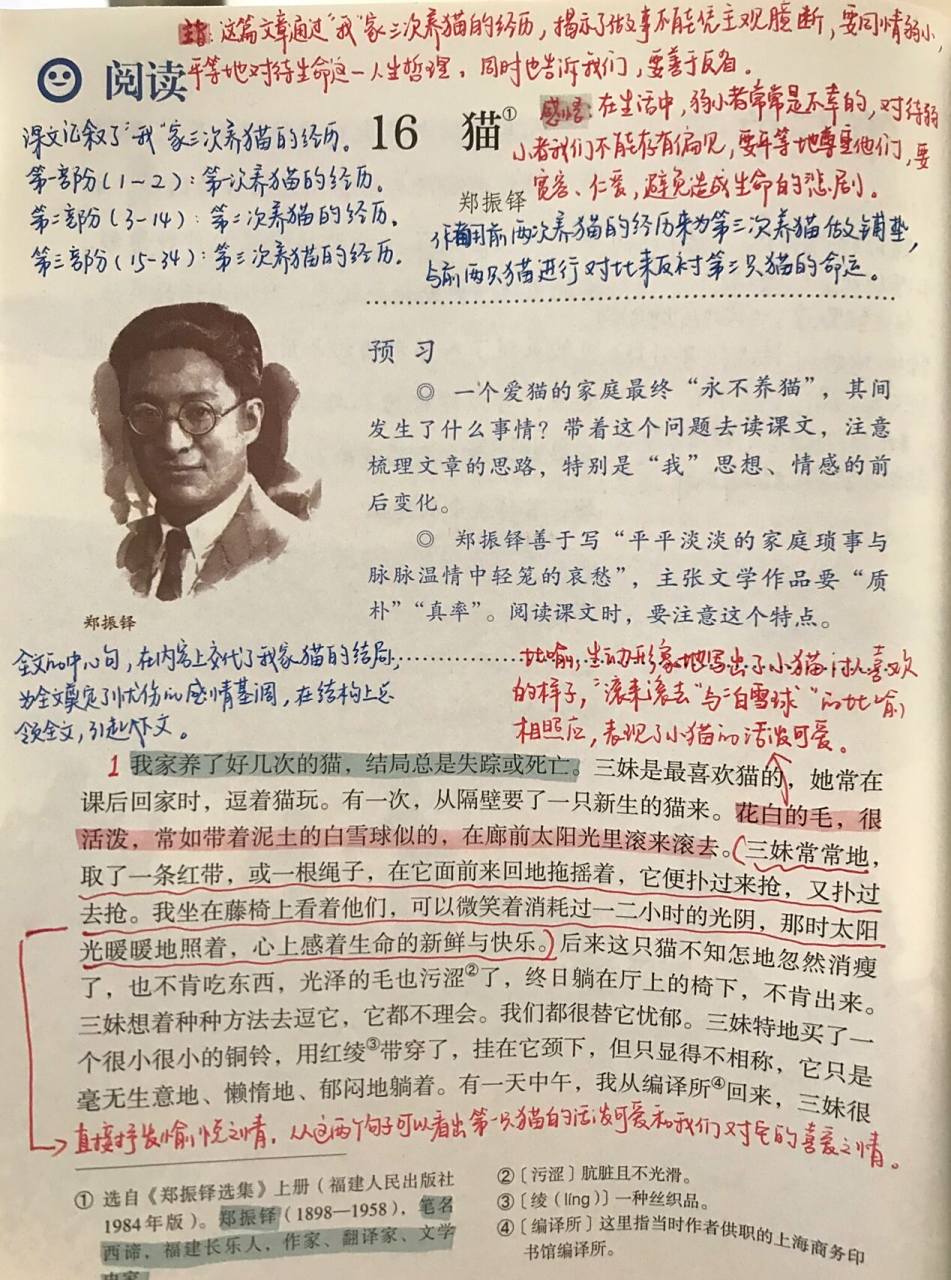 主旨:这篇文章通过“我”家三次养猫的经历,揭示了做事不能凭主观臆断,要同情弱小,
平等地对待生命这一人生哲理,同时也告诉我们,要善于反省。
阅读
16 猫①
郑振铎
感悟:在生活中,弱小者常常是不幸的,对待弱
小者我们不能存有偏见,要平等地尊重他们,要
宽容、仁爱,避免造成生命的悲剧。
课文记叙了“我”家三次养猫的经历。
第一部分(1-2):第一次养猫的经历。
第二部分(3-14):第二次养猫的经历。
第三部分(15-34):第三次养猫的经历。
作者用前两次养猫的经历来为第三次养猫做铺垫,
与前两只猫进行对比来反衬第三只猫的命运。
预 习
◎ 一个爱猫的家庭最终“永不养猫”,其间
发生了什么事情?带着这个问题去读课文,注意
梳理文章的思路,特别是“我”思想、情感的前
后变化。
◎ 郑振铎善于写“平平淡淡的家庭琐事与
脉脉温情中轻笼的哀愁”,主张文学作品要“质
朴”“真率”。阅读课文时,要注意这个特点。
郑振铎
全文的中心句,在内容上交代了我家猫的结局,
为全文奠定了忧伤的感情基调,在结构上总
领全文,引起下文。
比喻,生动形象地写出了小猫讨人喜欢
的样子,“滚来滚去”与“白雪球”的比喻
相照应,表现了小猫的活泼可爱。
1 我家养了好几次的猫,结局总是失踪或死亡。三妹是最喜欢猫的,她常在
课后回家时,逗着猫玩。有一次,从隔壁要了一只新生的猫来。花白的毛,很
活泼,常如带着泥土的白雪球似的,在廊前太阳光里滚来滚去。(三妹常常地,
取了一条红带,或一根绳子,在它面前来回地拖摇着,它便扑过来抢,又扑过
去抢。我坐在藤椅上看着他们,可以微笑着消耗过一二小时的光阴,那时太阳
光暖暖地照着,心上感着生命的新鲜与快乐。)后来这只猫不知怎地忽然消瘦
了,也不肯吃东西,光泽的毛也污涩②了,终日躺在厅上的椅下,不肯出来。
三妹想着种种方法去逗它,它都不理会。我们都很替它忧郁。三妹特地买了一
个很小很小的铜铃,用红绫③带穿了,挂在它颈下,但只显得不相称,它只是
毫无生意地、懒惰地、郁闷地躺着。有一天中午,我从编译所④回来,三妹很
直接抒发愉悦之情,从这两个句子可以看出第一只猫的活泼可爱和我们对它的喜爱之情。
① 选自《郑振铎选集》上册(福建人民出版社
1984年版)。郑振铎(1898—1958),笔名
西谛,福建长乐人,作家、翻译家、文学
史家。
②〔污涩〕肮脏且不光滑。
③〔绫(líng)〕一种丝织品。
④〔编译所〕这里指当时作者供职的上海商务印
书馆编译所。